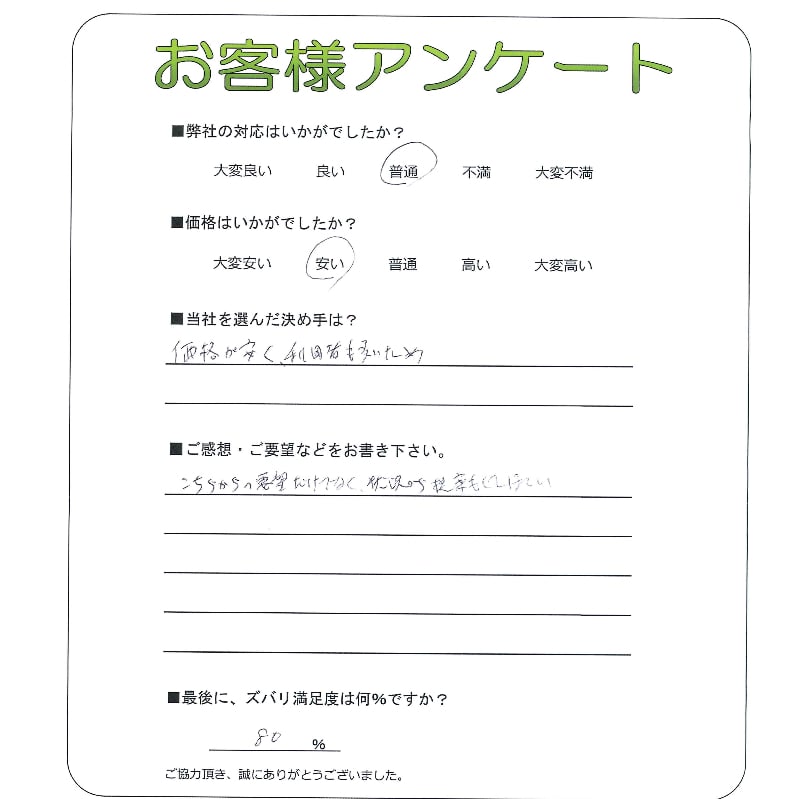 お客様アンケート
■弊社の対応はいかがでしたか？
大変良い 良い 普通 不満 大変不満
■価格はいかがでしたか？
大変安い 安い 普通 高い 大変高い
■当社を選んだ決め手は？
価格が安く、利用者も多いため
■ご感想・ご要望などをお書き下さい。
こちらからの要望だけでなく、状況から提案もしてほしい
■最後に、ズバリ満足度は何%ですか？
80 %
ご協力頂き、誠にありがとうございました。